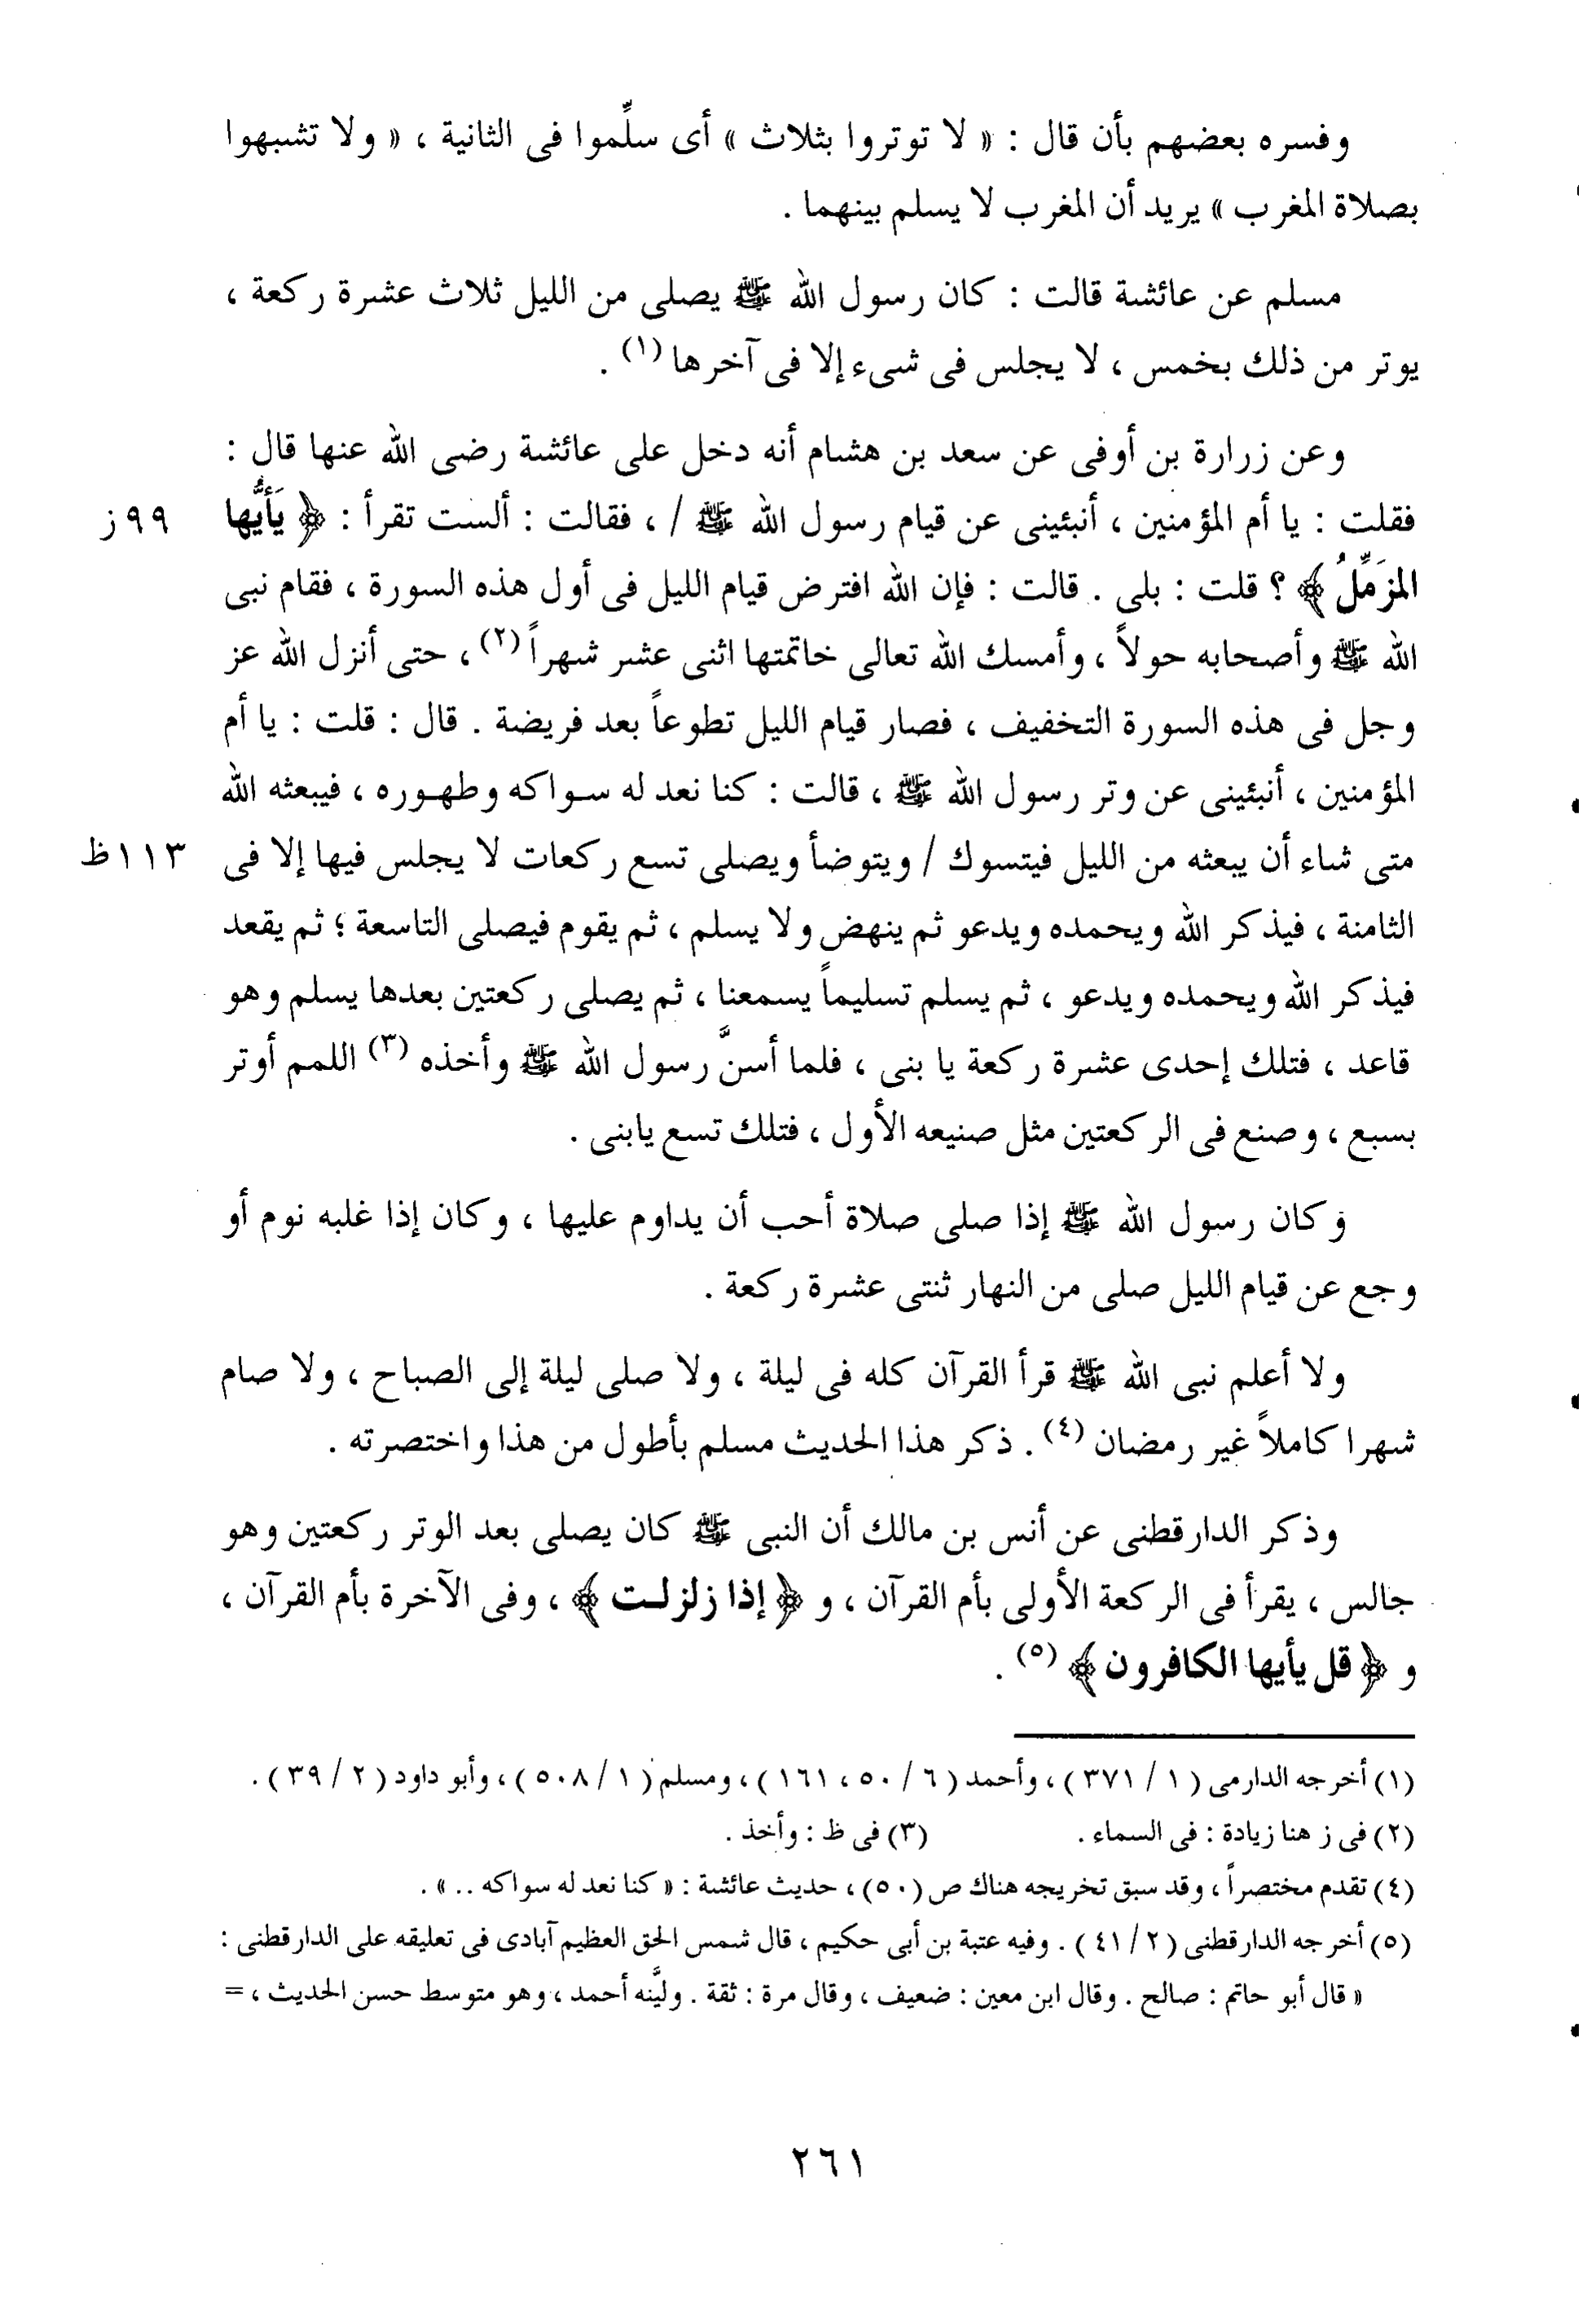 وفسره بعضهم بأن قال : « لا توتروا بثلاث » أى سلِّموا فى الثانية ، « ولا تشبهوا
بصلاة المغرب » يريد أن المغرب لا يسلم بينهما .
مسلم عن عائشة قالت : كان رسول الله ﷺ يصلى من الليل ثلاث عشرة ركعة ،
يوتر من ذلك بخمس ، لا يجلس فى شىء إلا فى آخرها (١) .
وعن زرارة بن أوفى عن سعد بن هشام أنه دخل على عائشة رضى الله عنها قال :
فقلت : يا أم المؤمنين ، أنبئينى عن قيام رسول الله ﷺ / ، فقالت : ألست تقرأ : ﴿ يَأيُّها ٩٩ ز
المزَمِّلُ ﴾ ؟ قلت : بلى . قالت : فإن الله افترض قيام الليل فى أول هذه السورة ، فقام نبى
الله ﷺ وأصحابه حولاً ، وأمسك الله تعالى خاتمتها اثنى عشر شهراً (٢) ، حتى أنزل الله عز
وجل فى هذه السورة التخفيف ، فصار قيام الليل تطوعاً بعد فريضة . قال : قلت : يا أم
المؤمنين ، أنبئينى عن وتر رسول الله ﷺ ، قالت : كنا نعد له سـواكه وطهـوره ، فيبعثه الله
متى شاء أن يبعثه من الليل فيتسوك / ويتوضأ ويصلى تسع ركعات لا يجلس فيها إلا فى ١١٣ ظ
الثامنة ، فيذكر الله ويحمده ويدعو ثم ينهض ولا يسلم ، ثم يقوم فيصلى التاسعة ؛ ثم يقعد
فيذكر الله ويحمده ويدعو ، ثم يسلم تسليماً يسمعنا ، ثم يصلى ركعتين بعدها يسلم وهو
قاعد ، فتلك إحدى عشرة ركعة يا بنى ، فلما أسنَّ رسول الله ﷺ وأخذه (٣) اللمم أوتر
بسبع ، وصنع فى الركعتين مثل صنيعه الأول ، فتلك تسع يابنى .
وكان رسول الله ﷺ إذا صلى صلاة أحب أن يداوم عليها ، وكان إذا غلبه نوم أو
وجع عن قيام الليل صلى من النهار ثنتى عشرة ركعة .
ولا أعلم نبى الله ﷺ قرأ القرآن كله فى ليلة ، ولا صلى ليلة إلى الصباح ، ولا صام
شهرا كاملاً غير رمضان (٤) . ذكر هذا الحديث مسلم بأطول من هذا واختصرته .
وذكر الدارقطنى عن أنس بن مالك أن النبى ﷺ كان يصلى بعد الوتر ركعتين وهو
جالس ، يقرأ فى الركعة الأولى بأم القرآن ، و ﴿ إذا زلزلـت ﴾ ، وفى الآخرة بأم القرآن ،
و ﴿ قل يأيها الكافرون ﴾ (٥) .
(١) أخرجه الدارمى ( ١ / ٣٧١ ) ، وأحمد ( ٦ / ٥٠ ، ١٦١ ) ، ومسلم ( ١ / ٥٠٨ ) ، وأبو داود ( ٢ / ٣٩ ) .
(٢) فى ز هنا زيادة : فى السماء . (٣) فى ظ : وأخذ .
(٤) تقدم مختصراً ، وقد سبق تخريجه هناك ص (٥٠) ، حديث عائشة : « كنا نعد له سواكه .. » .
(٥) أخرجه الدارقطنى ( ٢ / ٤١ ) . وفيه عتبة بن أبى حكيم ، قال شمس الحق العظيم آبادى فى تعليقه على الدارقطنى :
« قال أبو حاتم : صالح . وقال ابن معين : ضعيف ، وقال مرة : ثقة . وليَّنه أحمد ، وهو متوسط حسن الحديث ، =
٢٦١